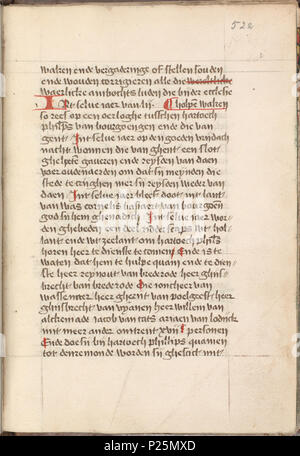 522
waren ende vergaderinge of stellen souden
ende wouden corrigieren alle die wereltlicke
waerlicke ambochts luden die buer ettelke
Int selve iaer van lii. Tholpe waren
so rees op een oerloghe tusschen hartoch
philips van bourgoengen ende die van
gent. Int selve iaer op den goeden vrindach
nacht wonnen die van ghent een slot
ghehieten gaueren ende reysden van daen
voer oudenaerden om dat si meynden die
stede te crighen mer si reysden weder van
daen. Int selve iaer bleef doot mit lant
van was cornelis bastaert van bourgoen
god si hem ghenadich. Int selve iaer wor
den ghebeden een deel ridderscaps wt hol
lant ende wt zeelant om hartoch philips
horen heer te dienste te comen. Ende is te
waten dat hem te hulpe quam ende te dien
ste heer reynout van brederode heer ghiis
brecht van brederode. De ioncheer van
wassenaer. heer gherit van poelgeest heer
ghiisbrecht van vyanen heer willem van
alckemade iacob van cats adriaen van
mit meer ander omtrent xvii personen
Ende doe si bii hartoch philips quamen
tot denremonde worden si ghesant mit
alamy stock photo
P25MXD